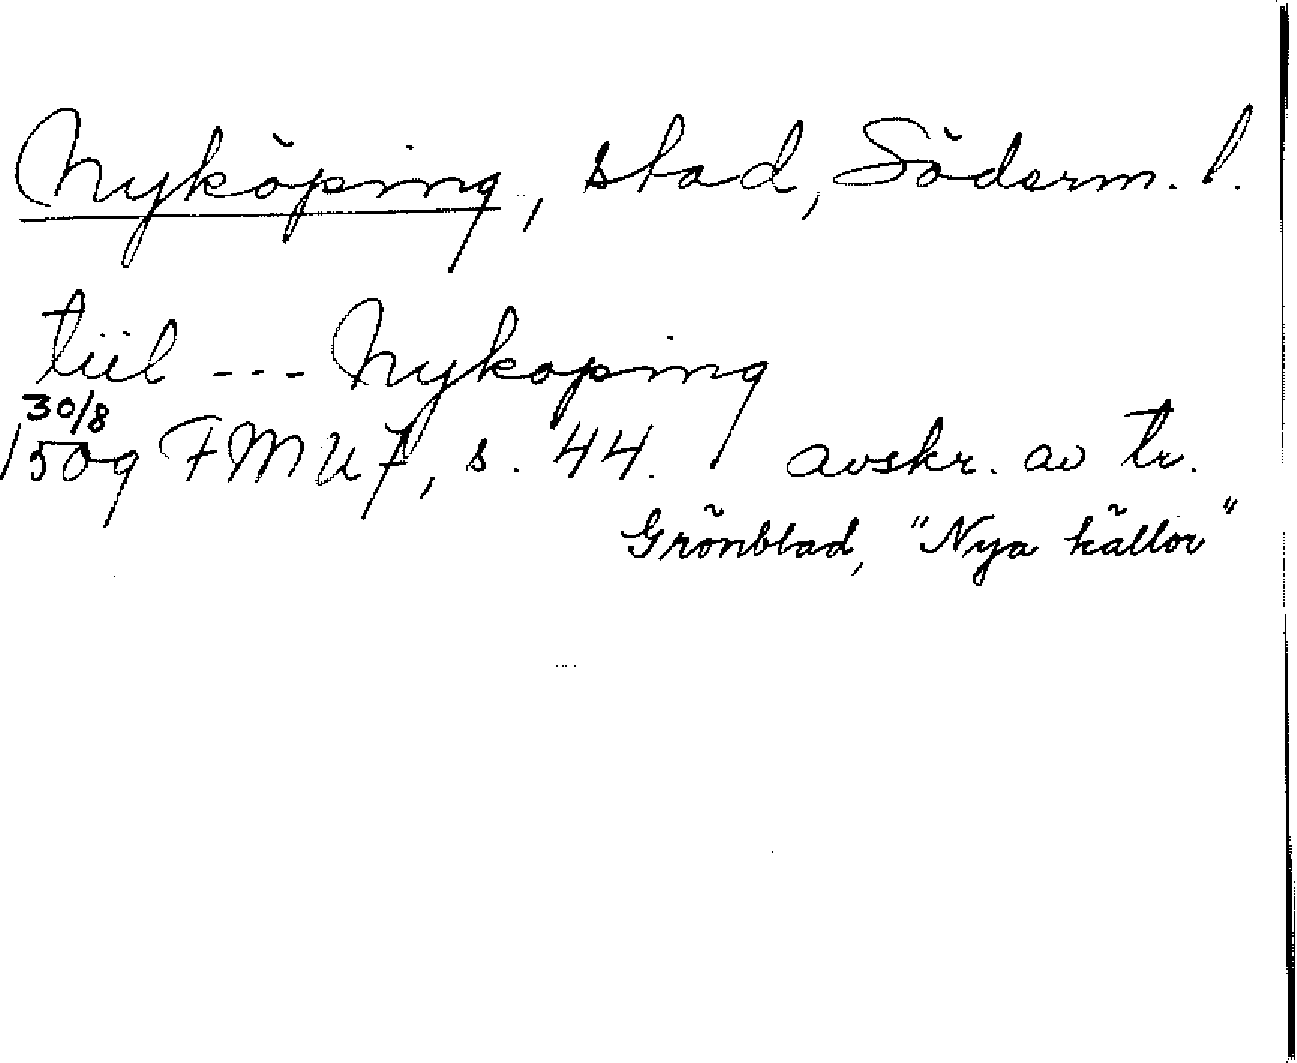 Nyköping, stad, Söderm. l.
tiil --- Nykoping
30/8
1509 FMU 7, s. 44. avskr. av tr.
Grönblad, "Nya källor"